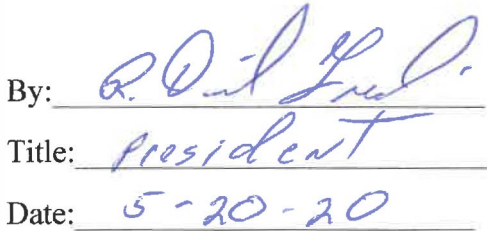 By: R. D
Title: President
Date: 5-20-20